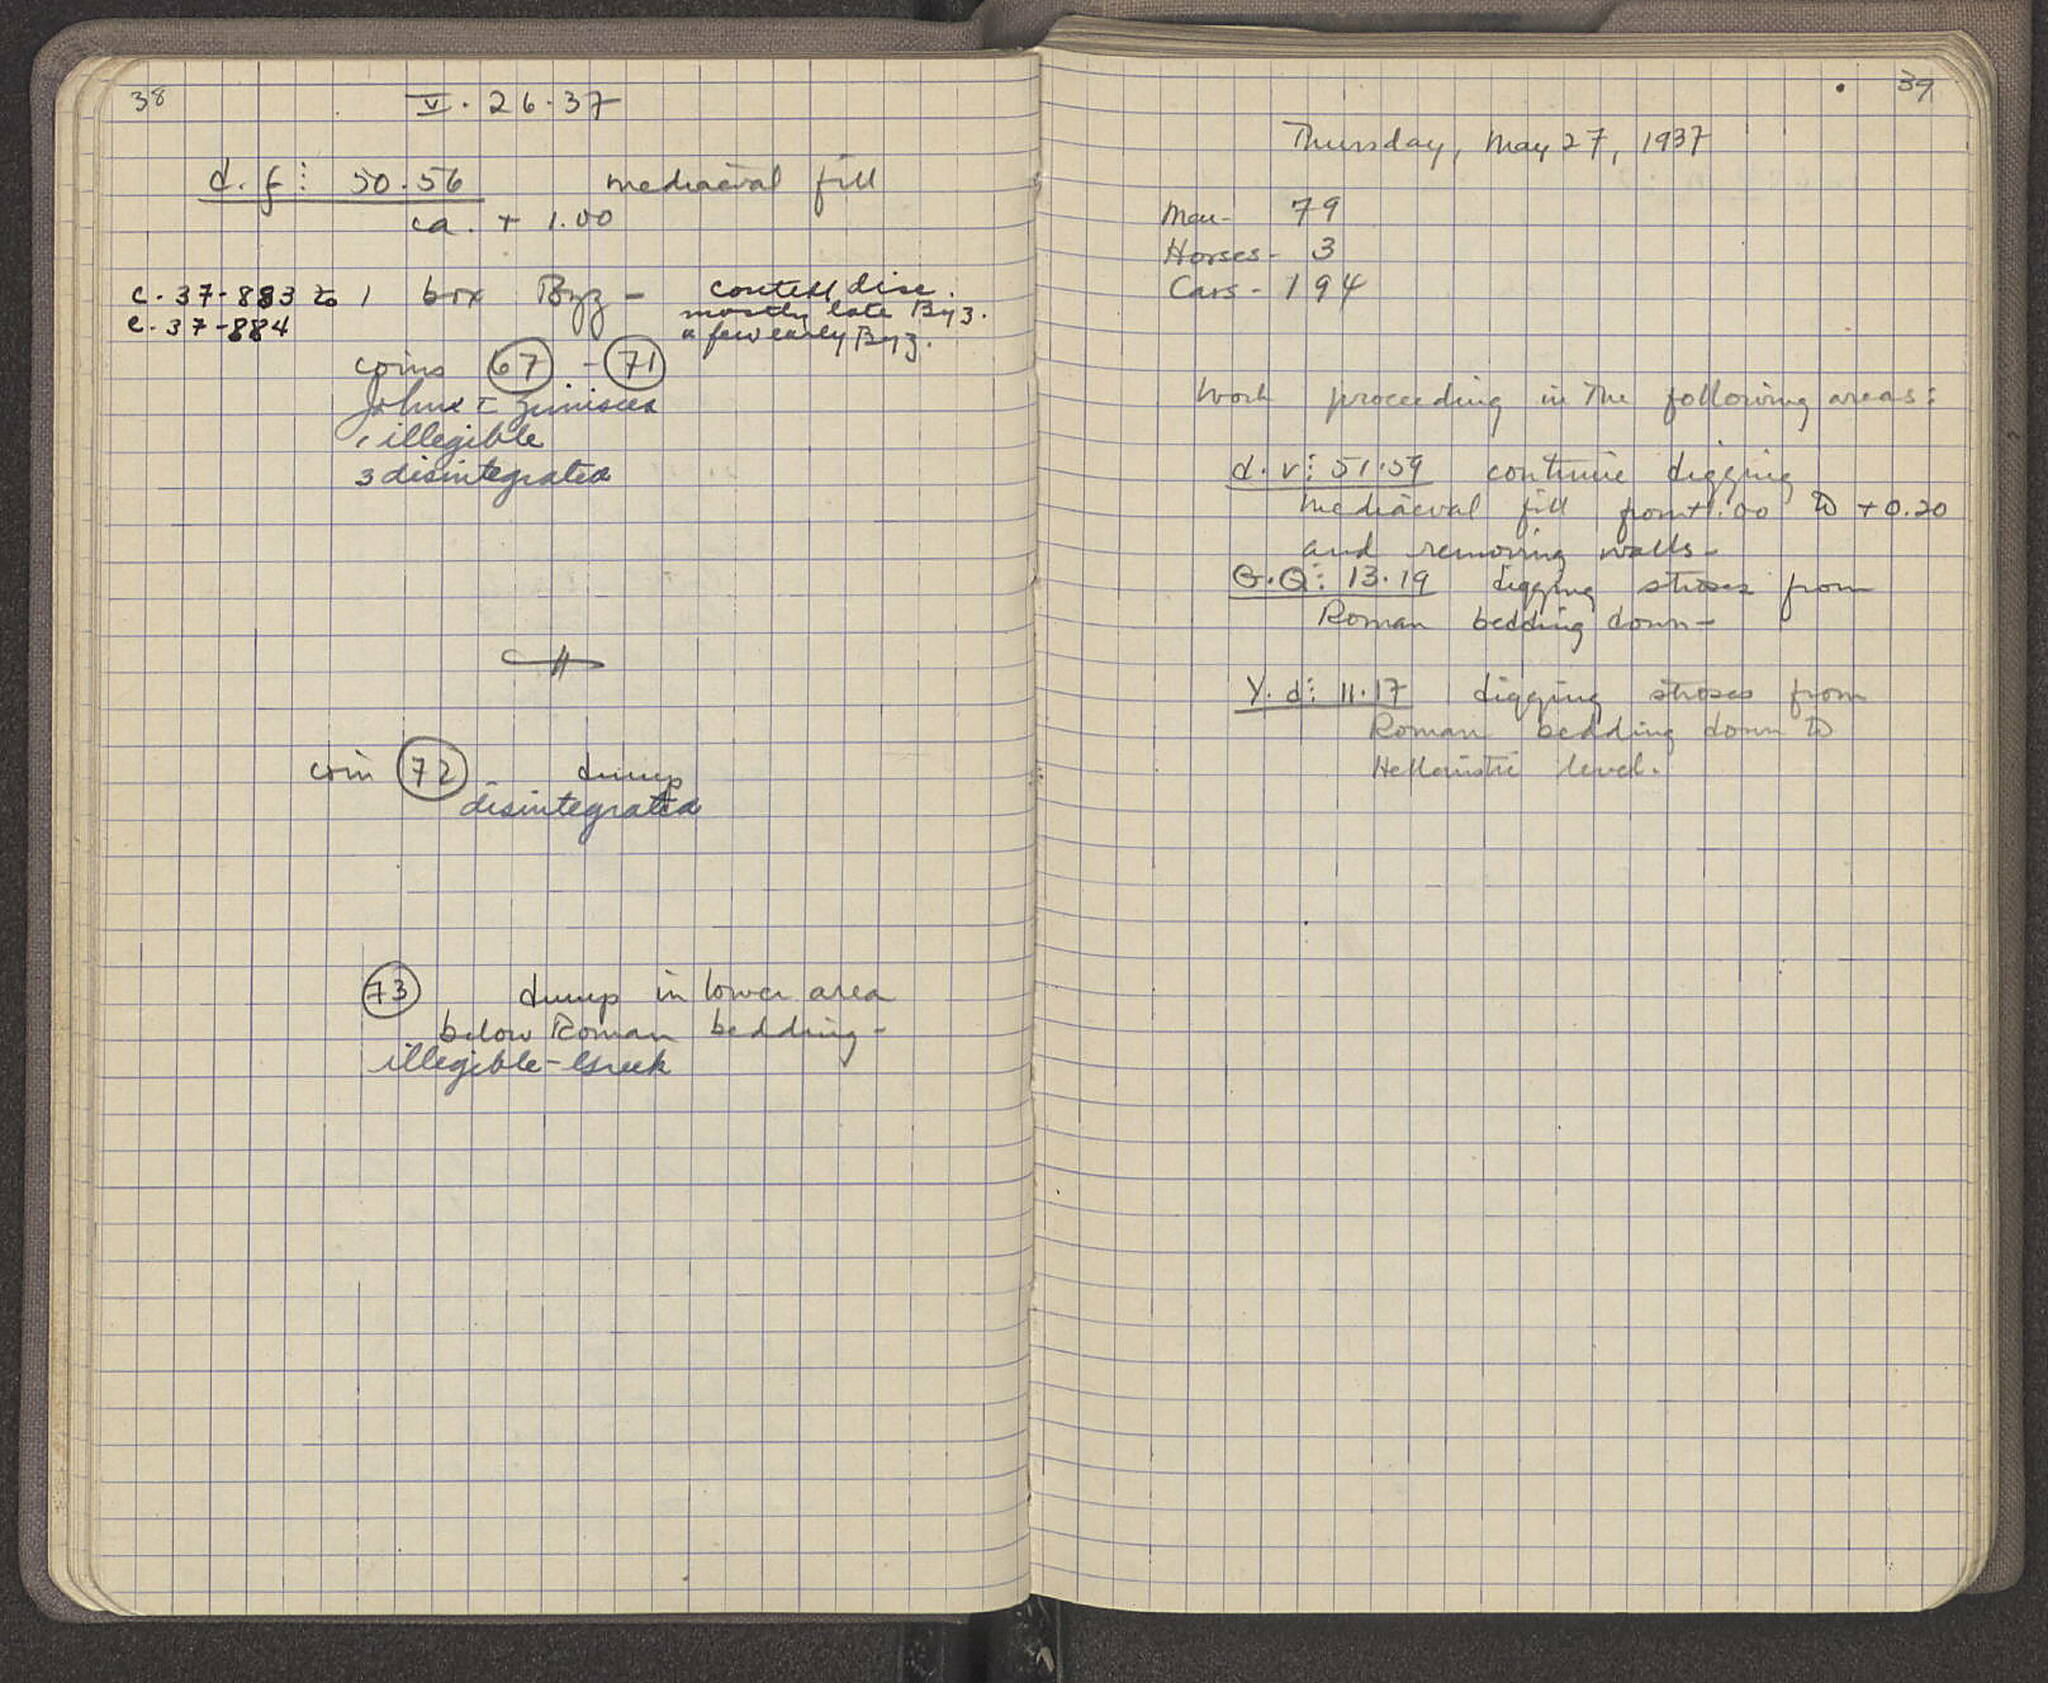 38
V. 26.37
d. f: 50.56 mediaeval fill
ca. + 1.00
c. 37-883 to 1 box Byz - context disc.
c. 37-884 mostly late Byz.
a few early Byz.
coins 67 - 71
John I Zimisces
1 illegible
3 disintegrated
coin 72 - dump
disintegrated
73 dump in lower area
below Roman bedding -
illegible - Greek
39
Thursday, May 27, 1937
Men - 79
Horses - 3
Cars - 194
Work proceeding in the following areas:
d. v: 51.59 continue digging
mediaeval fill from +1.00 to +0.20
and removing walls -
G.Q: 13.19 digging stroses from
Roman bedding down -
Y. d: 11.17 digging stroses from
Roman bedding down to
Hellenistic level.